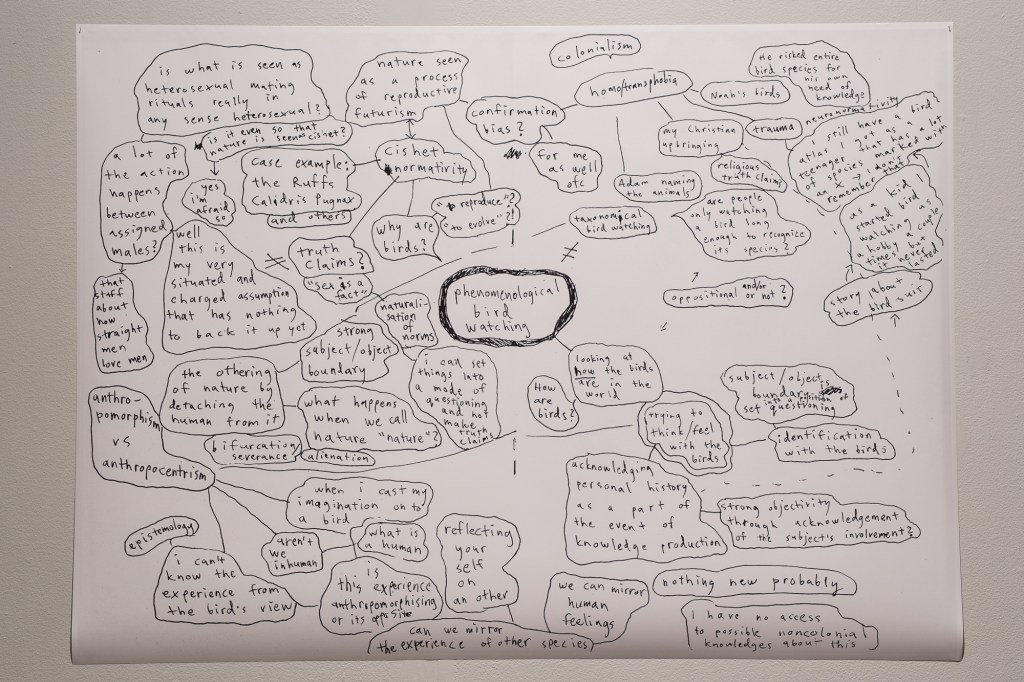 is what is seen as
heterosexual mating
rituals really in
any sense heterosexual?
is it even so that
nature is seen as cishet?
yes
i'm
afraid
so
nature seen
as a process
of reproductive
futurism
confirmation
bias?
for me
as well
ofc
colonialism
homo/transphobia
Noah's birds
He risked entire
bird species for
his own
need of
knowledge
my Christian
upbringing
trauma
religious
truth claims
Adam naming
the animals
neuronormativity
i still have a bird
atlas i got as a
teenager that has a lot
of species marked with
an X → i don't
remember that
as a kid i
started bird
watching as
a hobby a couple
times but
it never
lasted
story about
the bird suit
a lot of
the action
happens
between
assigned
males?
that
stuff
about
how
straight
men
love men
well
this is
my very
situated and
charged assumption
that has nothing
to back it up yet
case example:
the Ruffs
Calidris Pugnax
and others
Cishet
normativity
why are
birds?
"to reproduce"?
"to evolve"?!
≠
truth
claims?
"sex is a
fact"
naturali-
sation
of
norms
taxonomical
bird watching
are people
only watching
a bird long
enough to recognize
its species?
≠
oppositional and/or or not?
phenomenological
bird
watching
strong
subject/object
boundary
i can set
things into
a mode of
questioning
and not
make
truth
claims
the othering
of nature by
detaching the
human from it
what happens
when we call
nature "nature"?
bifurcation
severance
alienation
anthro-
pomorphism
vs
anthropocentrism
looking at
how the birds
are in the
world
How
are
birds?
trying to
think/feel
with the
birds
subject/object
boundary is
into a position of
set questioning
identification
with the birds
acknowledging
personal history
as a part of
the event of
knowledge production
strong objectivity
through acknowledgement
of the subject's involvement?
when i cast my
imagination on to
a bird
what is
a human
aren't
we
inhuman
epistemology
i can't
know the
experience from
the bird's view
is
this experience
anthropomorphising
or its opposite
reflecting
your
self
on
an other
can we mirror
the experience of other species
we can mirror
human
feelings
nothing new probably
i have no access
to possible noncolonial
knowledges about this